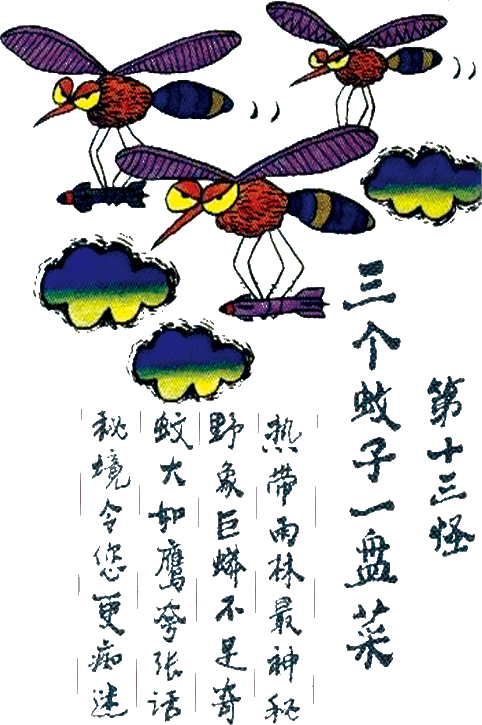 第十三怪
三个蚊子一盘菜
热带雨林最神秘
野象巨蟒不足奇
蚊大如鹰夸张话
秘境令您更痴迷